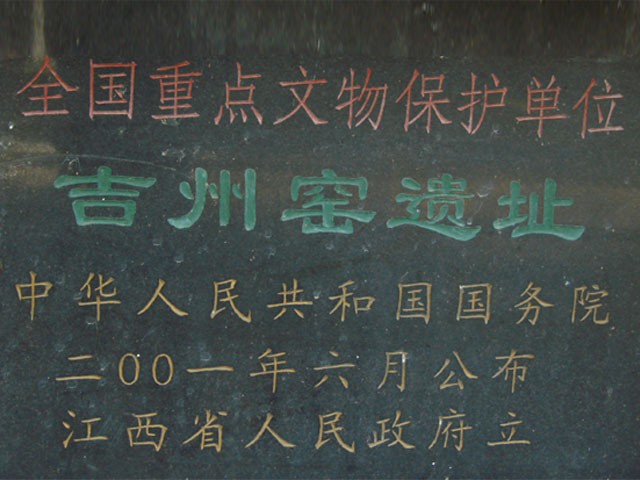 全国重点文物保护单位
吉州窑遗址
中华人民共和国国务院
二00一年六月公布
江西省人民政府立